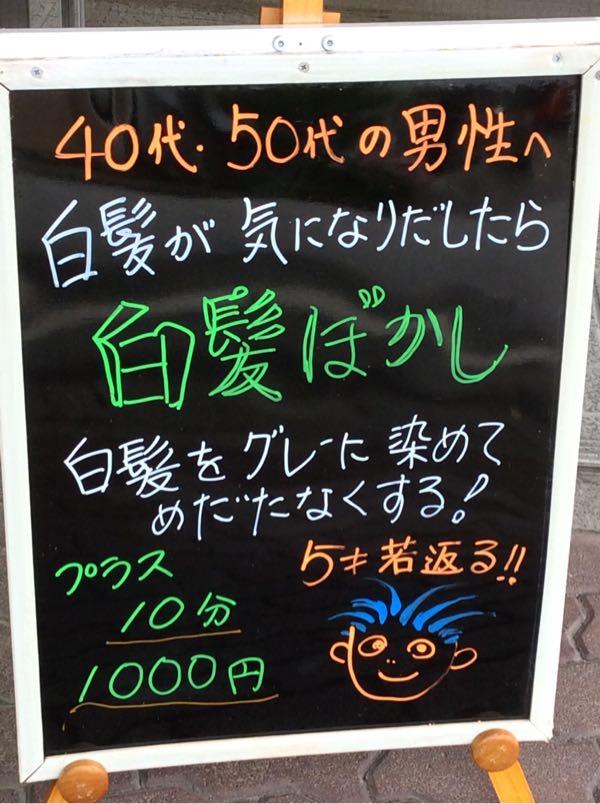 40代・50代の男性へ
白髪が 気になりだしたら
白髪ぼかし
白髪をグレーに染めて
めだたなくする!
プラス
10分
1000円
5才若返る!!